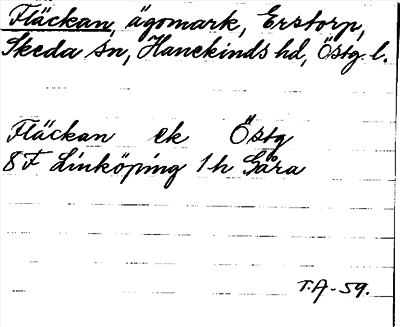 Fläckan, ägomark, Erstorp,
Skeda sn, Hanekinds hd, Östg. l.
Fläckan ek Östg
8F Linköping 1h Gåra
T.A-59.